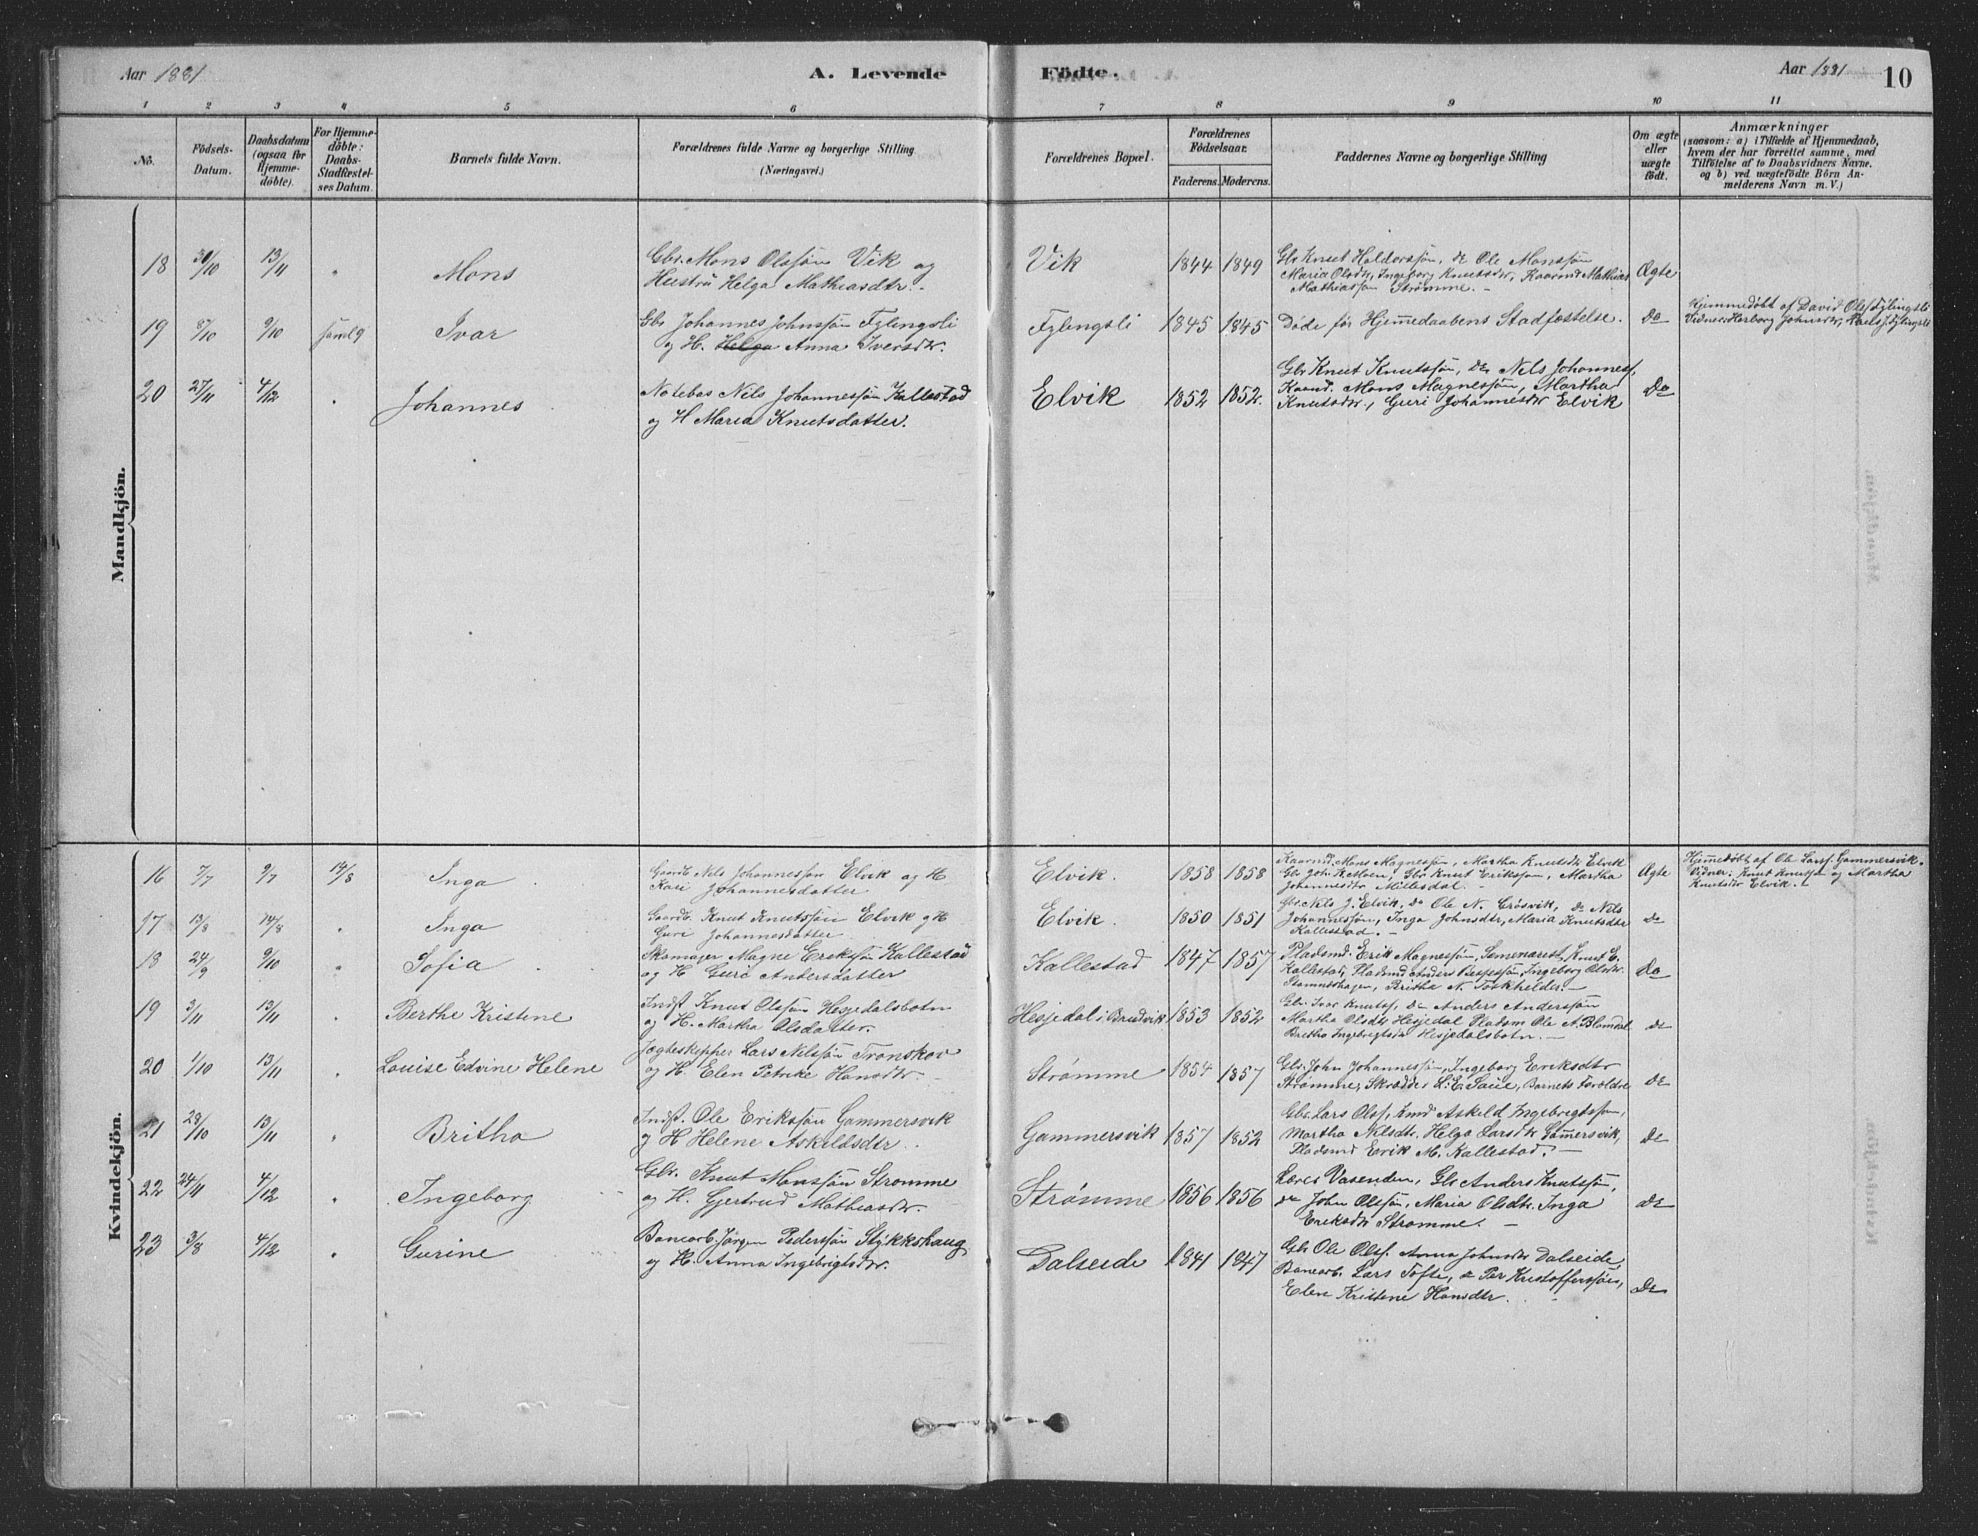 Aar 1881
A. Levende
Födte.
Aar 1881
10
1 2 3 4 5 6 7 8 9 10 11
No.
Födsels-
Datum.
Daabsdatum
(ogsaa for
Hjemme-
döbte).
For Hjemme-
döbte:
Daabs-
Stadfæstel-
ses Datum.
Barnets fulde Navn.
Forældrenes fulde Navne og borgerlige Stilling
(Næringsvei.)
Forældrenes Bopæl.
Forældrenes
Födselsaar.
Faderens. Moderens.
Faddernes Navne og borgerlige Stilling
Om ægte
eller
uægte
födt.
Anmærkninger
(saasom: a) i Tilfælde af Hjemmedaab,
hvem der har forrettet samme, med
Tilföielse af to Daabsvidners Navne.
og b) ved uægtefödte Börn An-
melderens Navn m. V.)
Mandkjön.
18 30/10 13/11 " Mons
Gbr. Mons Olssön Vik og
Hustru Helga Mathiasdtr.
Vik 1844 1849
Gbr Knut Haldorssön, do Ole Monssön
Maria Olsdtr, Ingeborg Knutsdtr, Kaarmd Mathias
Mathiassön Strömme. -
Ægte
19 8/10 9/10 Ivar
Gbr Johannes Johnssön Fylingsli
og H. Helga Anna Iversdtr.
Fylingsli 1845 1845 Döde för Hjemmedaabens Stadfæstelse. Do
Hjemmedøbt af David Olss Fylingsli
Vidner: Herborg Johnsdtr,
20 27/11 4/12 " Johannes
Notebas Nils Johannessön Kallestad
og H Maria Knutsdatter.
Elvik 1852 1852.
Gbr Knut Knutssön, do Nils Johanness,
Kaarmd. Mons Magnessön, Martha
Knutsdtr., Guri Johannesdtr Elvik
Do
Kvindekjön.
16 7/7 9/7 14/8 Inga
Gaardb Nils Johannessön Elvik og H
Kari Johannesdatter
Elvik. 1858 1858
Kaarmd. Mons Magnessön, Martha Knutsdtr Elvik
Gbr Knut Erikssön, Martha
Johannesdtr Millesdal. -
Ægte
Hjemmedøbt af Ole Larss. Gammersvik.
Vidner: Knut Knutssön og Martha
Knutsdtr Elvik. -
17 13/8 14/8 " Inga
Gaardb. Knut Knutssön Elvik og H
Guri Johannesdatter
Elvik. 1850 1851
Gbr. Nils J. Elvik, do Ole N. Grösvik, do Nils
Johannessön, Inga Johnsdtr, Maria Knutsdtr
Kallestad. -
do
18 24/9 9/10 " Sofia
Skomager Magne Erikssön Kallestad
og H Guri Andersdatter
Kallestad 1847 1857
Pladsmd. Erik Magnessön, Seminarist Knut E.
Kallestad, Pladsmd Anders Ingeborg Olsdtr.
Stamneshagen, Britha N.
Do
19 3/11 13/11 " Berthe Kristine
Indst Knut Olssön Hesjedalsbotn
og H. Martha Olsdatter.
Hesjedal i Brudvik 1853 1852
Gbr. Ivar Knutss, do Anders Anderssön
Martha Olsdtr Hesjedal Pladsm Ole A. Blomdal
Britha Ingebrigtsdtr Hesjedalsbotn. -
do
20 1/10 13/11 " Louise Edvine Helene
Jægteskipper Lars Nilssön Tronskov
og H. Elen Petrike Hansdtr. -
Strømme 1854 1857
Gbr. John Johannessön, Ingeborg Eriksdtr
Strømme, Skrædder L. E. Saue, Barnets Forældre
do
21 29/10 13/11 " Britha
Indst. Ole Erikssön Gammersvik
og H Helene Askildsdtr.
Gammersvik 1857 1852
Gbr. Lars Olss, Kmd Askild Ingebrigtssön,
Martha Nilsdtr, Helga Larsdtr Gamersvik,
Pladsmd Erik M. Kallestad. -
do
22 24/11 4/12 " Ingeborg
Gbr. Knut Monssön Strømme
og H. Gjertrud Mathiasdtr.
Strømme 1856 1856
Lærer Vasenden, Gbr Anders Knutssön,
do John Olssön, Maria Olsdtr. Inga
Eriksdtr Strømme. -
do
23 3/8 4/12 " Gurine
Banearb. Jörgen Pederssön Stykkshaug
og H. Anna Ingebrigtsdtr.
Dalseide 1841 1847
Gbr Ole Olss. Anna Johnsdtr Dalseide,
Banearb. Lars Tofte, do Per Kristofferssön,
Elen Kristine Hansdtr.
Do